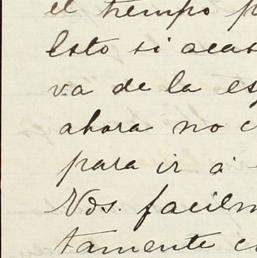 el tiempo p
Esto si acas
va de la es
ahora no c
para ir á
Nos. facilm
tamente c